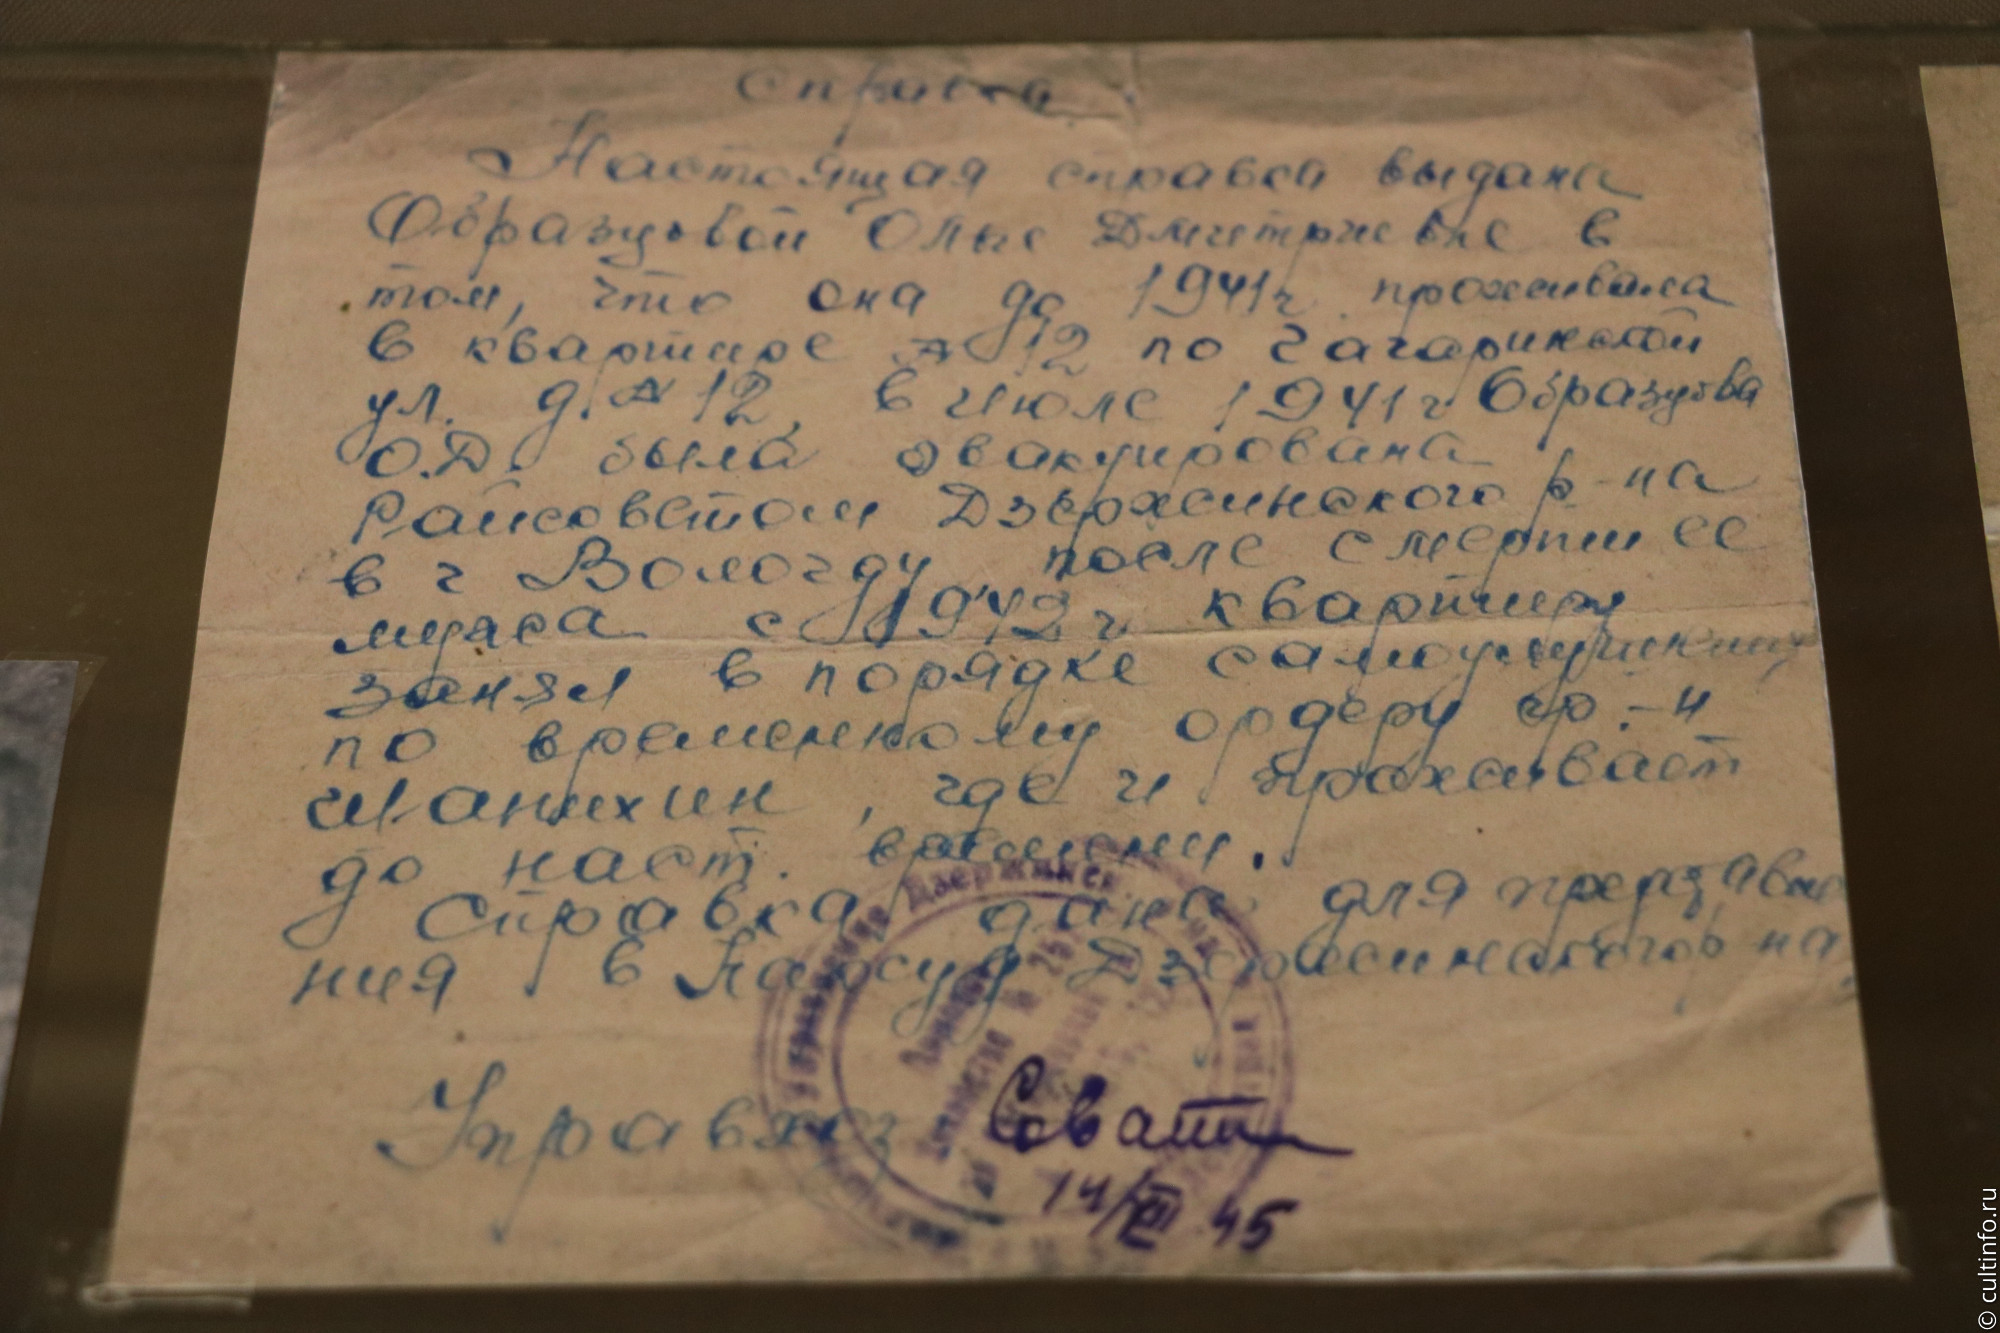 Справка
Настоящая справка выдана
Образцовой Ольге Дмитриевне в
том, что она до 1941г. проживала
в квартире № 12 по Гагаринской
ул. д. № 12. В июле 1941г Образцова
О.Д. была эвакуирована
Райсоветом Дзержинского р-на
в г Вологду после смерти ее
мужа с 1942г. квартиру
занял в порядке
по временному ордеру гр.-н
Шанихин, где и проживает
до наст. времени.
Справка дана для представле
ния в Нарсуд Дзержинского р на,
Управхоз
14/XII 45
Управление Дзержинск.
© cultinfo.ru